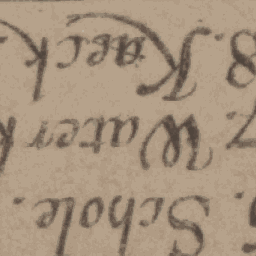 6. Schole.
7. Water
8. Kaeck.